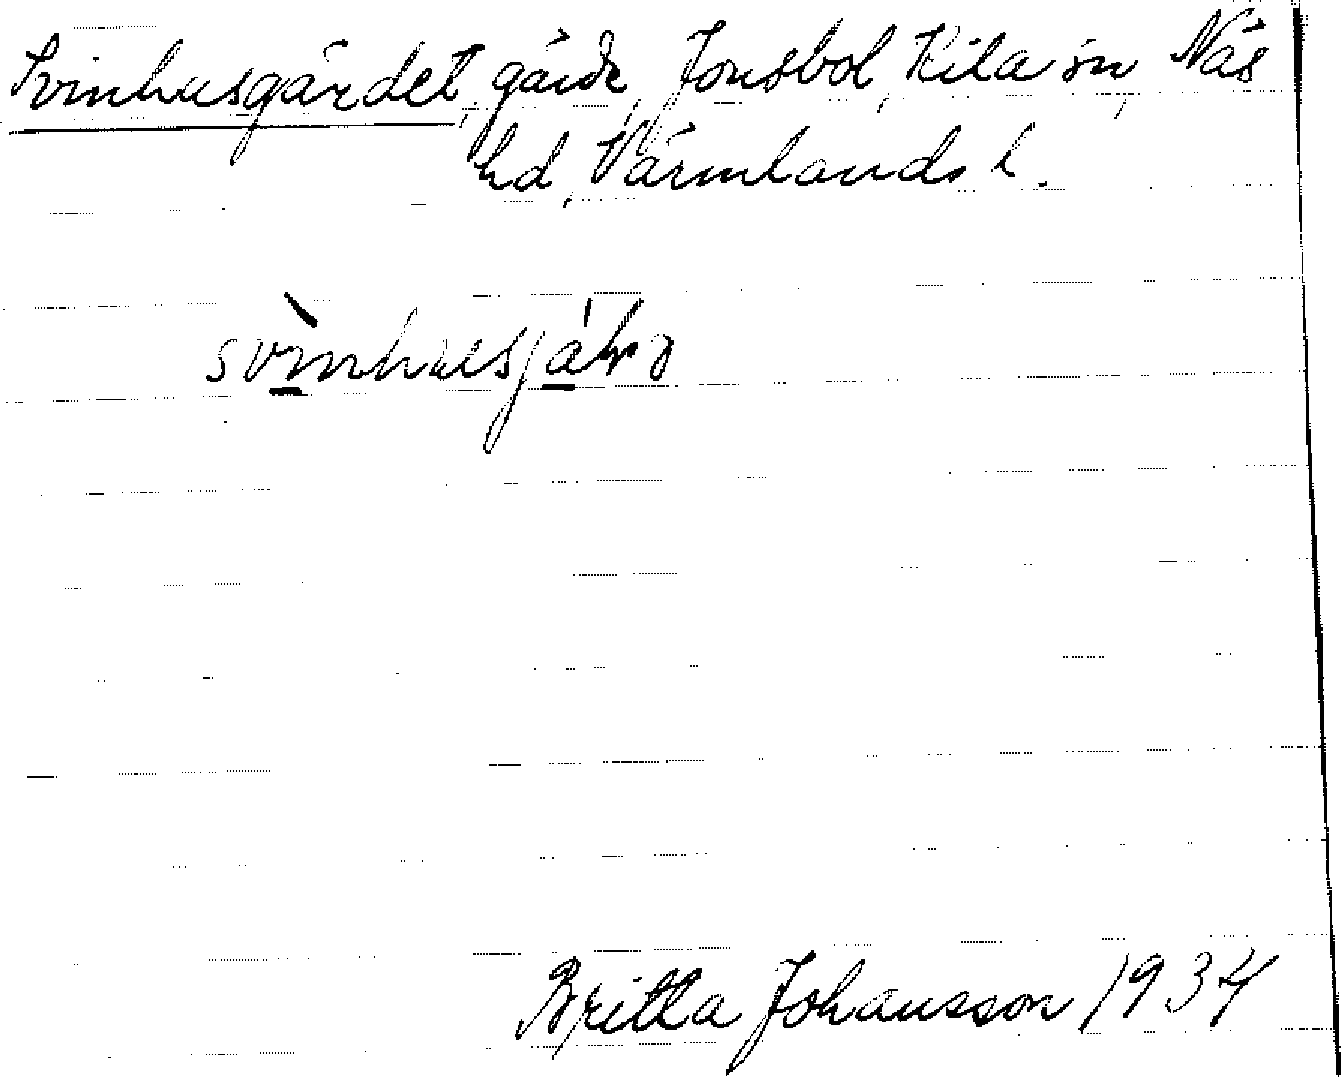 Svinhusgärdet, gärde, Jonsbol, Kila sn, Näs
hd, Värmlands l.
Britta Johansson 1934